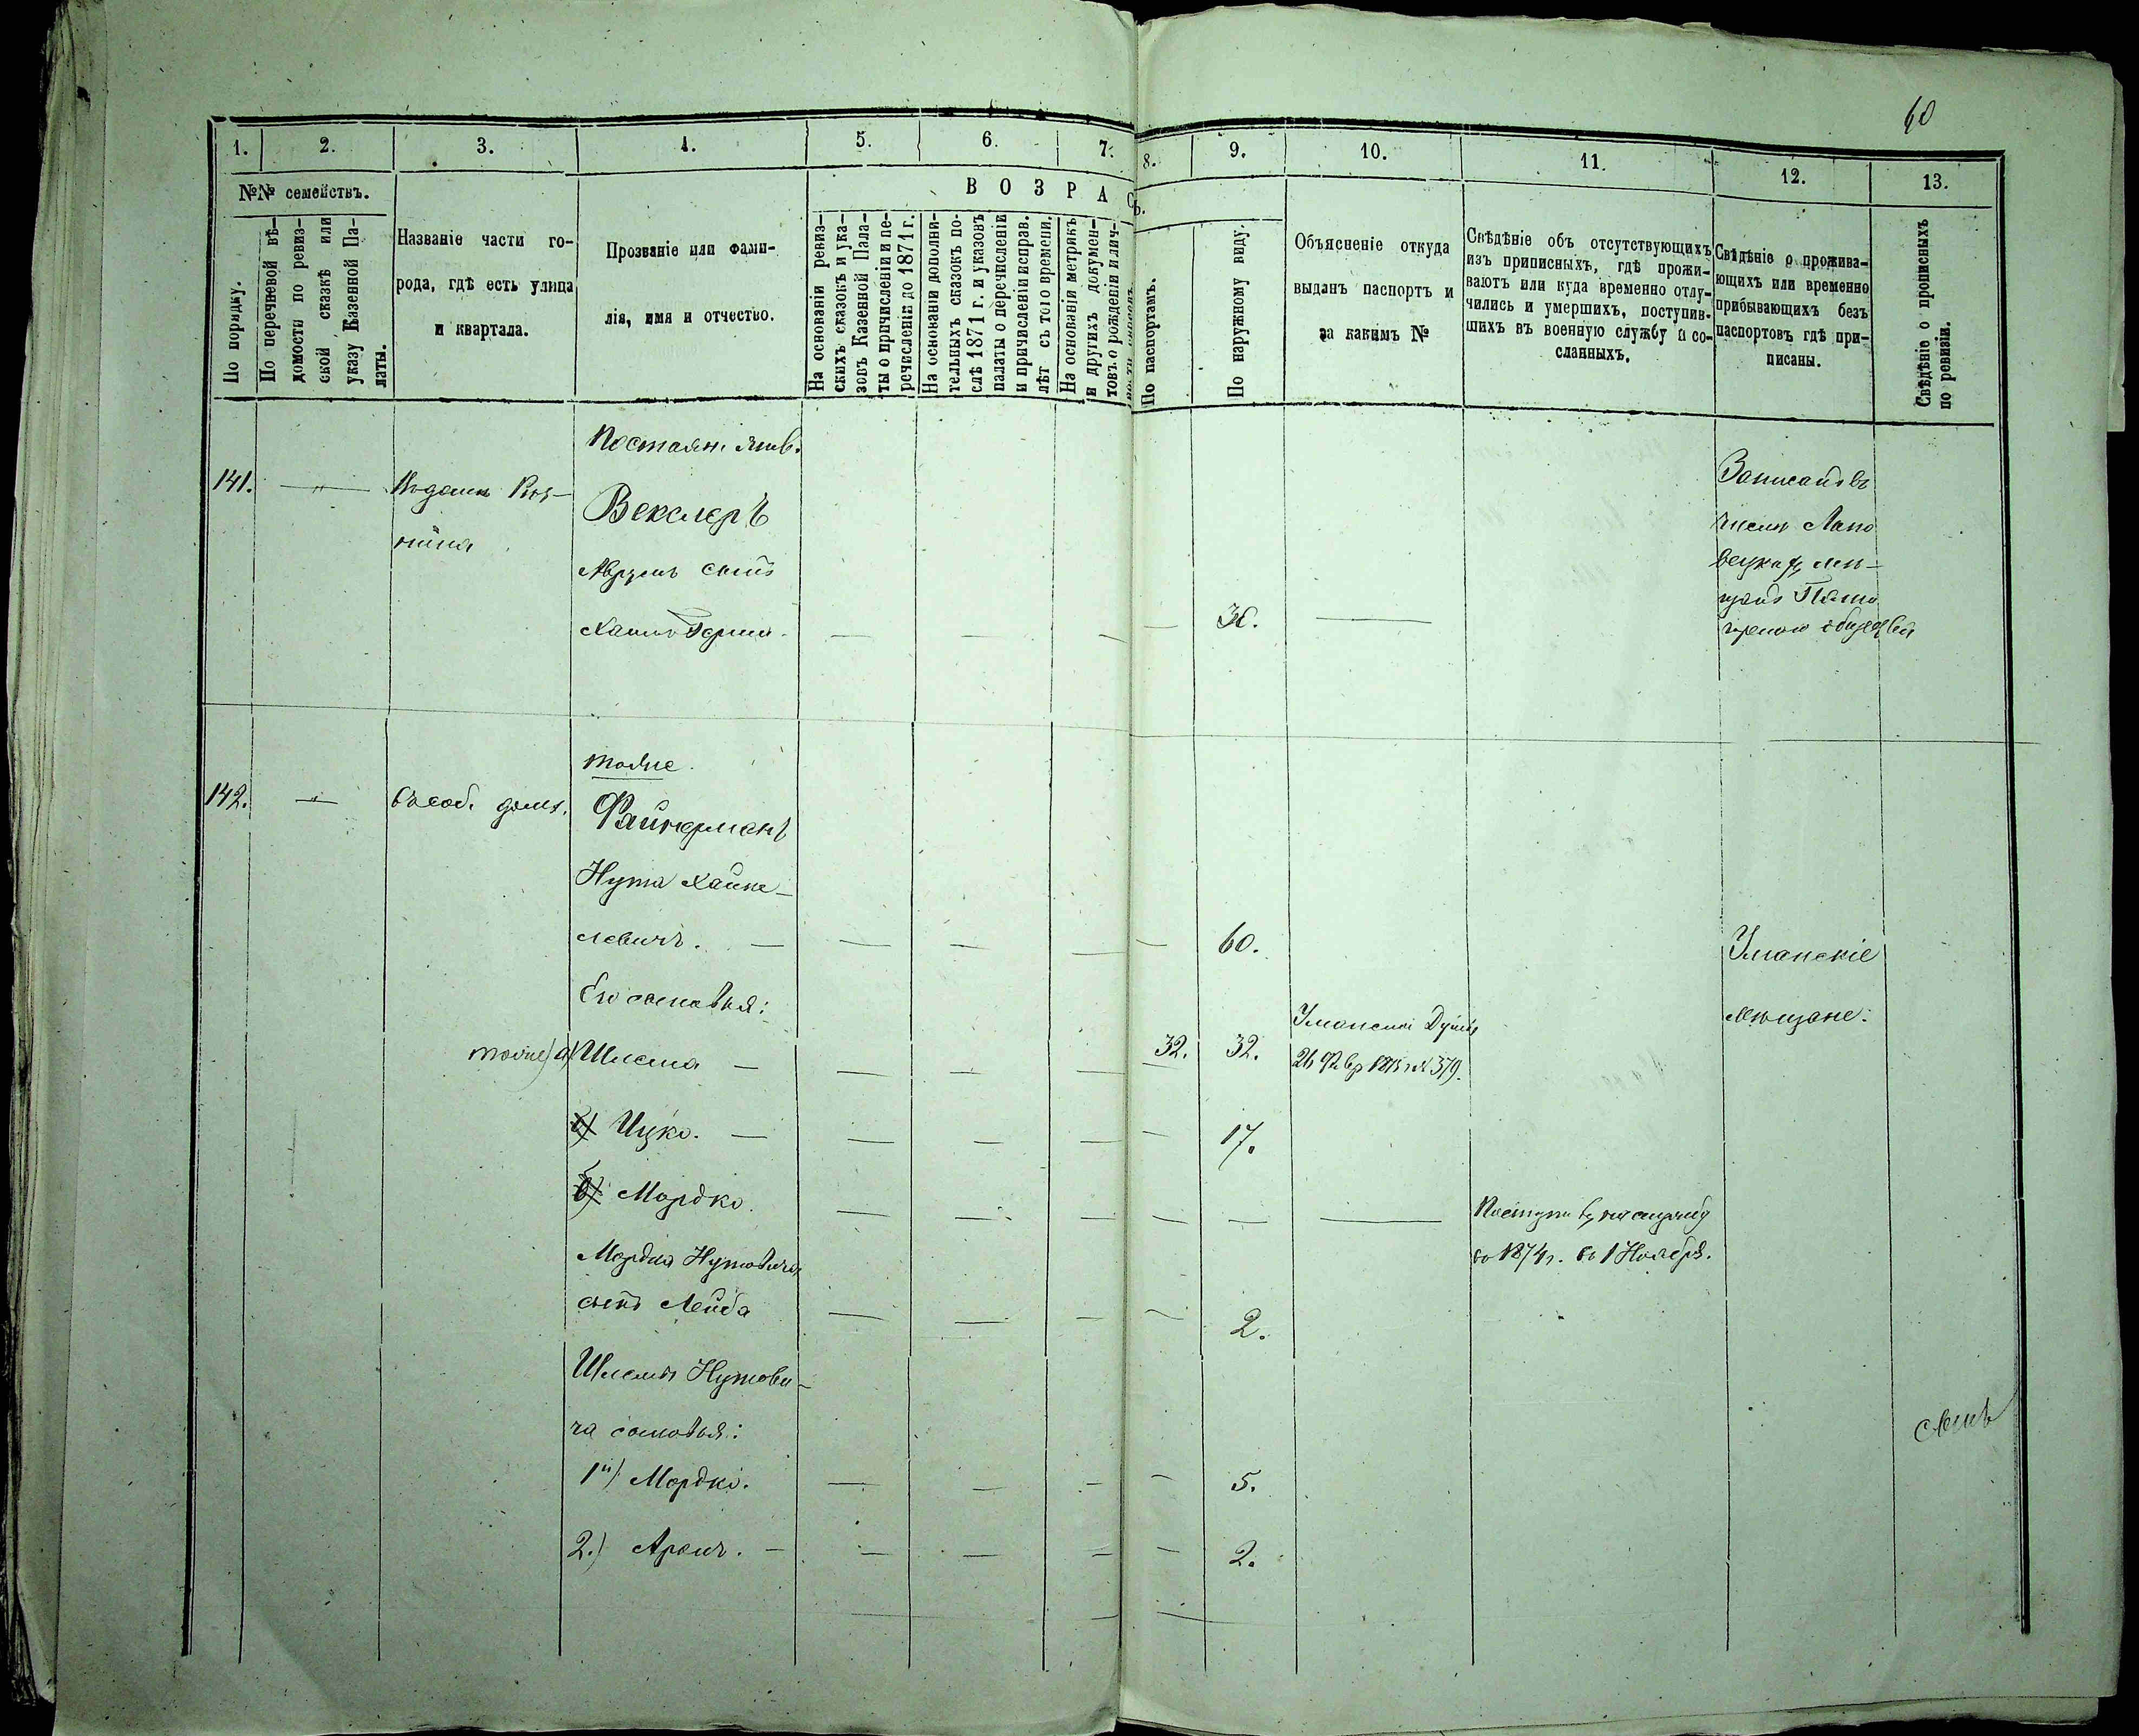 60
1. 2. 3. 4. 5. 6. 7. 8. 9. 10. 11. 12. 13.
№№ семействъ.
По порядку.
По перечневой вѣ-
домости по ревиз-
ской сказкѣ или
указу Казенной Па-
латы.
Названіе части го-
рода, гдѣ есть улица
и квартала.
Прозваніе или фами-
лія, имя и отчество.
ВОЗРАСТЪ.
На основаніи ревиз-
скихъ сказокъ и ука-
зовъ Казенной Пала-
ты о причисленіи и пе-
речисленіи до 1871 г.
На основаніи дополни-
тельныхъ сказокъ по-
слѣ 1871 г. и указовъ
палаты о перечисленіи
и причисленіи исправ.
лѣт съ того времени.
На основаніи метрикъ
и другихъ докумен-
товъ о рожденіи и лич-
По паспортамъ.
По наружному виду.
Объясненіе откуда
выданъ паспортъ и
за какимъ №
Свѣдѣніе объ отсутствующихъ
изъ приписныхъ, гдѣ прожи-
ваютъ или куда временно отлу-
чились и умершихъ, поступив-
шихъ въ военную службу и со-
сланныхъ.
Свѣдѣніе о прожива-
ющихъ или временно
прибывающихъ безъ
паспортовъ гдѣ при-
писаны.
Свѣдѣніе о прописныхъ
по ревизіи.
Постоян. жив.
141. — " —
Векслеръ
Аврумъ сынъ
Хаимъ Герша. — — — — 36. —
Записанъ въ
числѣ
мѣ-
щанъ
тоже.
142. — " — Въ соб. домѣ.
Файнерманъ
Нута Хайке-
левичъ. — — — — — 60. Уманскіе
мѣщане.
Его сыновья:
тоже) а) Шлема — — — — 32. 32. Уманской Думы
№ 379.
Ицко. — — — — — 17.
Мордко. — — — — — — Поступи въ
въ 1874 г. въ 1 Ноября.
Мордка Нутовича
сынъ Лейба — — — — 2.
Шлемы Нутови-
ча сыновья:
1й) Мордко. — — — — 5.
2.) Аронъ. — — — — — 2.